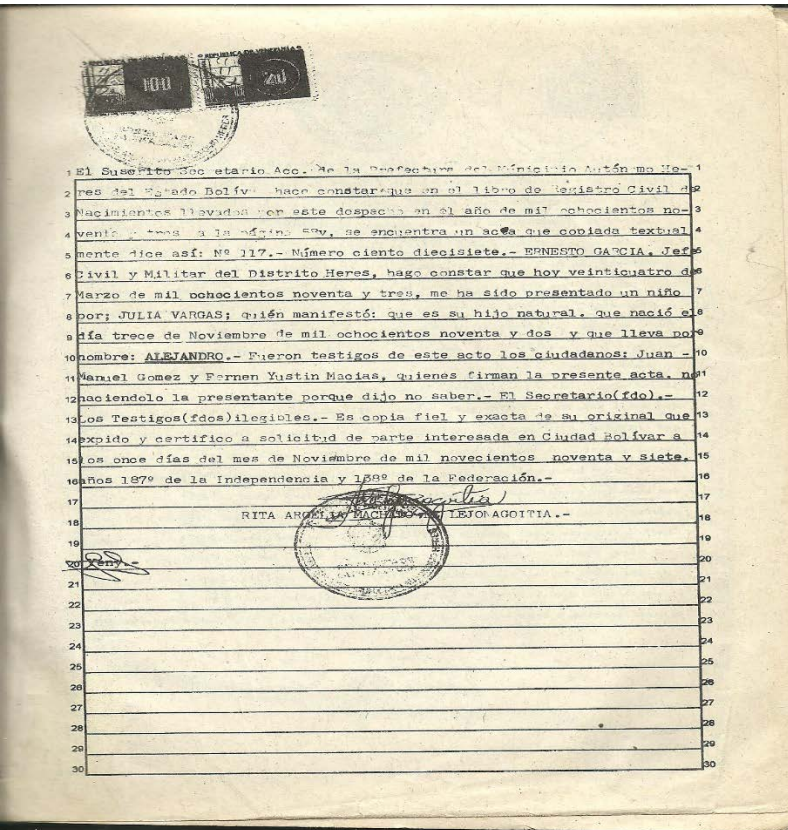 REPUBLICA DE VENEZUELA
100
20
1 El Suscrito Sec etario Acc. de la Prefectura del Municipio Autónomo He- 1
2 res del Estado Bolív hace constar que en el libro de Registro Civil de 2
3 Nacimientos llevados por este despacho en el año de mil ochocientos no- 3
4 venta y tres a la página 58v, se encuentra un acta que copiada textual 4
5 mente dice así: Nº 117.- Número ciento diecisiete.- ERNESTO GARCIA, Jefe 5
6 Civil y Militar del Distrito Heres, hago constar que hoy veinticuatro de 6
7 Marzo de mil ochocientos noventa y tres, me ha sido presentado un niño 7
8 por; JULIA VARGAS; quién manifestó: que es su hijo natural. que nació el 8
9 día trece de Noviembre de mil ochocientos noventa y dos y que lleva por 9
10 nombre: ALEJANDRO.- Fueron testigos de este acto los ciudadanos: Juan - 10
11 Manuel Gomez y Fernen Yustin Macias, quienes firman la presente acta. no 11
12 haciendolo la presentante porque dijo no saber.- El Secretario(fdo).- 12
13 Los Testigos(fdos)ilegibles.- Es copia fiel y exacta de su original que 13
14 expido y certifico a solicitud de parte interesada en Ciudad Bolívar a 14
15 los once días del mes de Noviembre de mil novecientos noventa y siete. 15
16 años 187º de la Independencia y 138º de la Federación.- 16
17 17
18 RITA ARGELIA MACHADO LEJONAGOITIA.- 18
19 19
20 Yeny.- 20
21 21
22 22
23 23
24 24
25 25
26 26
27 27
28 28
29 29
30 30